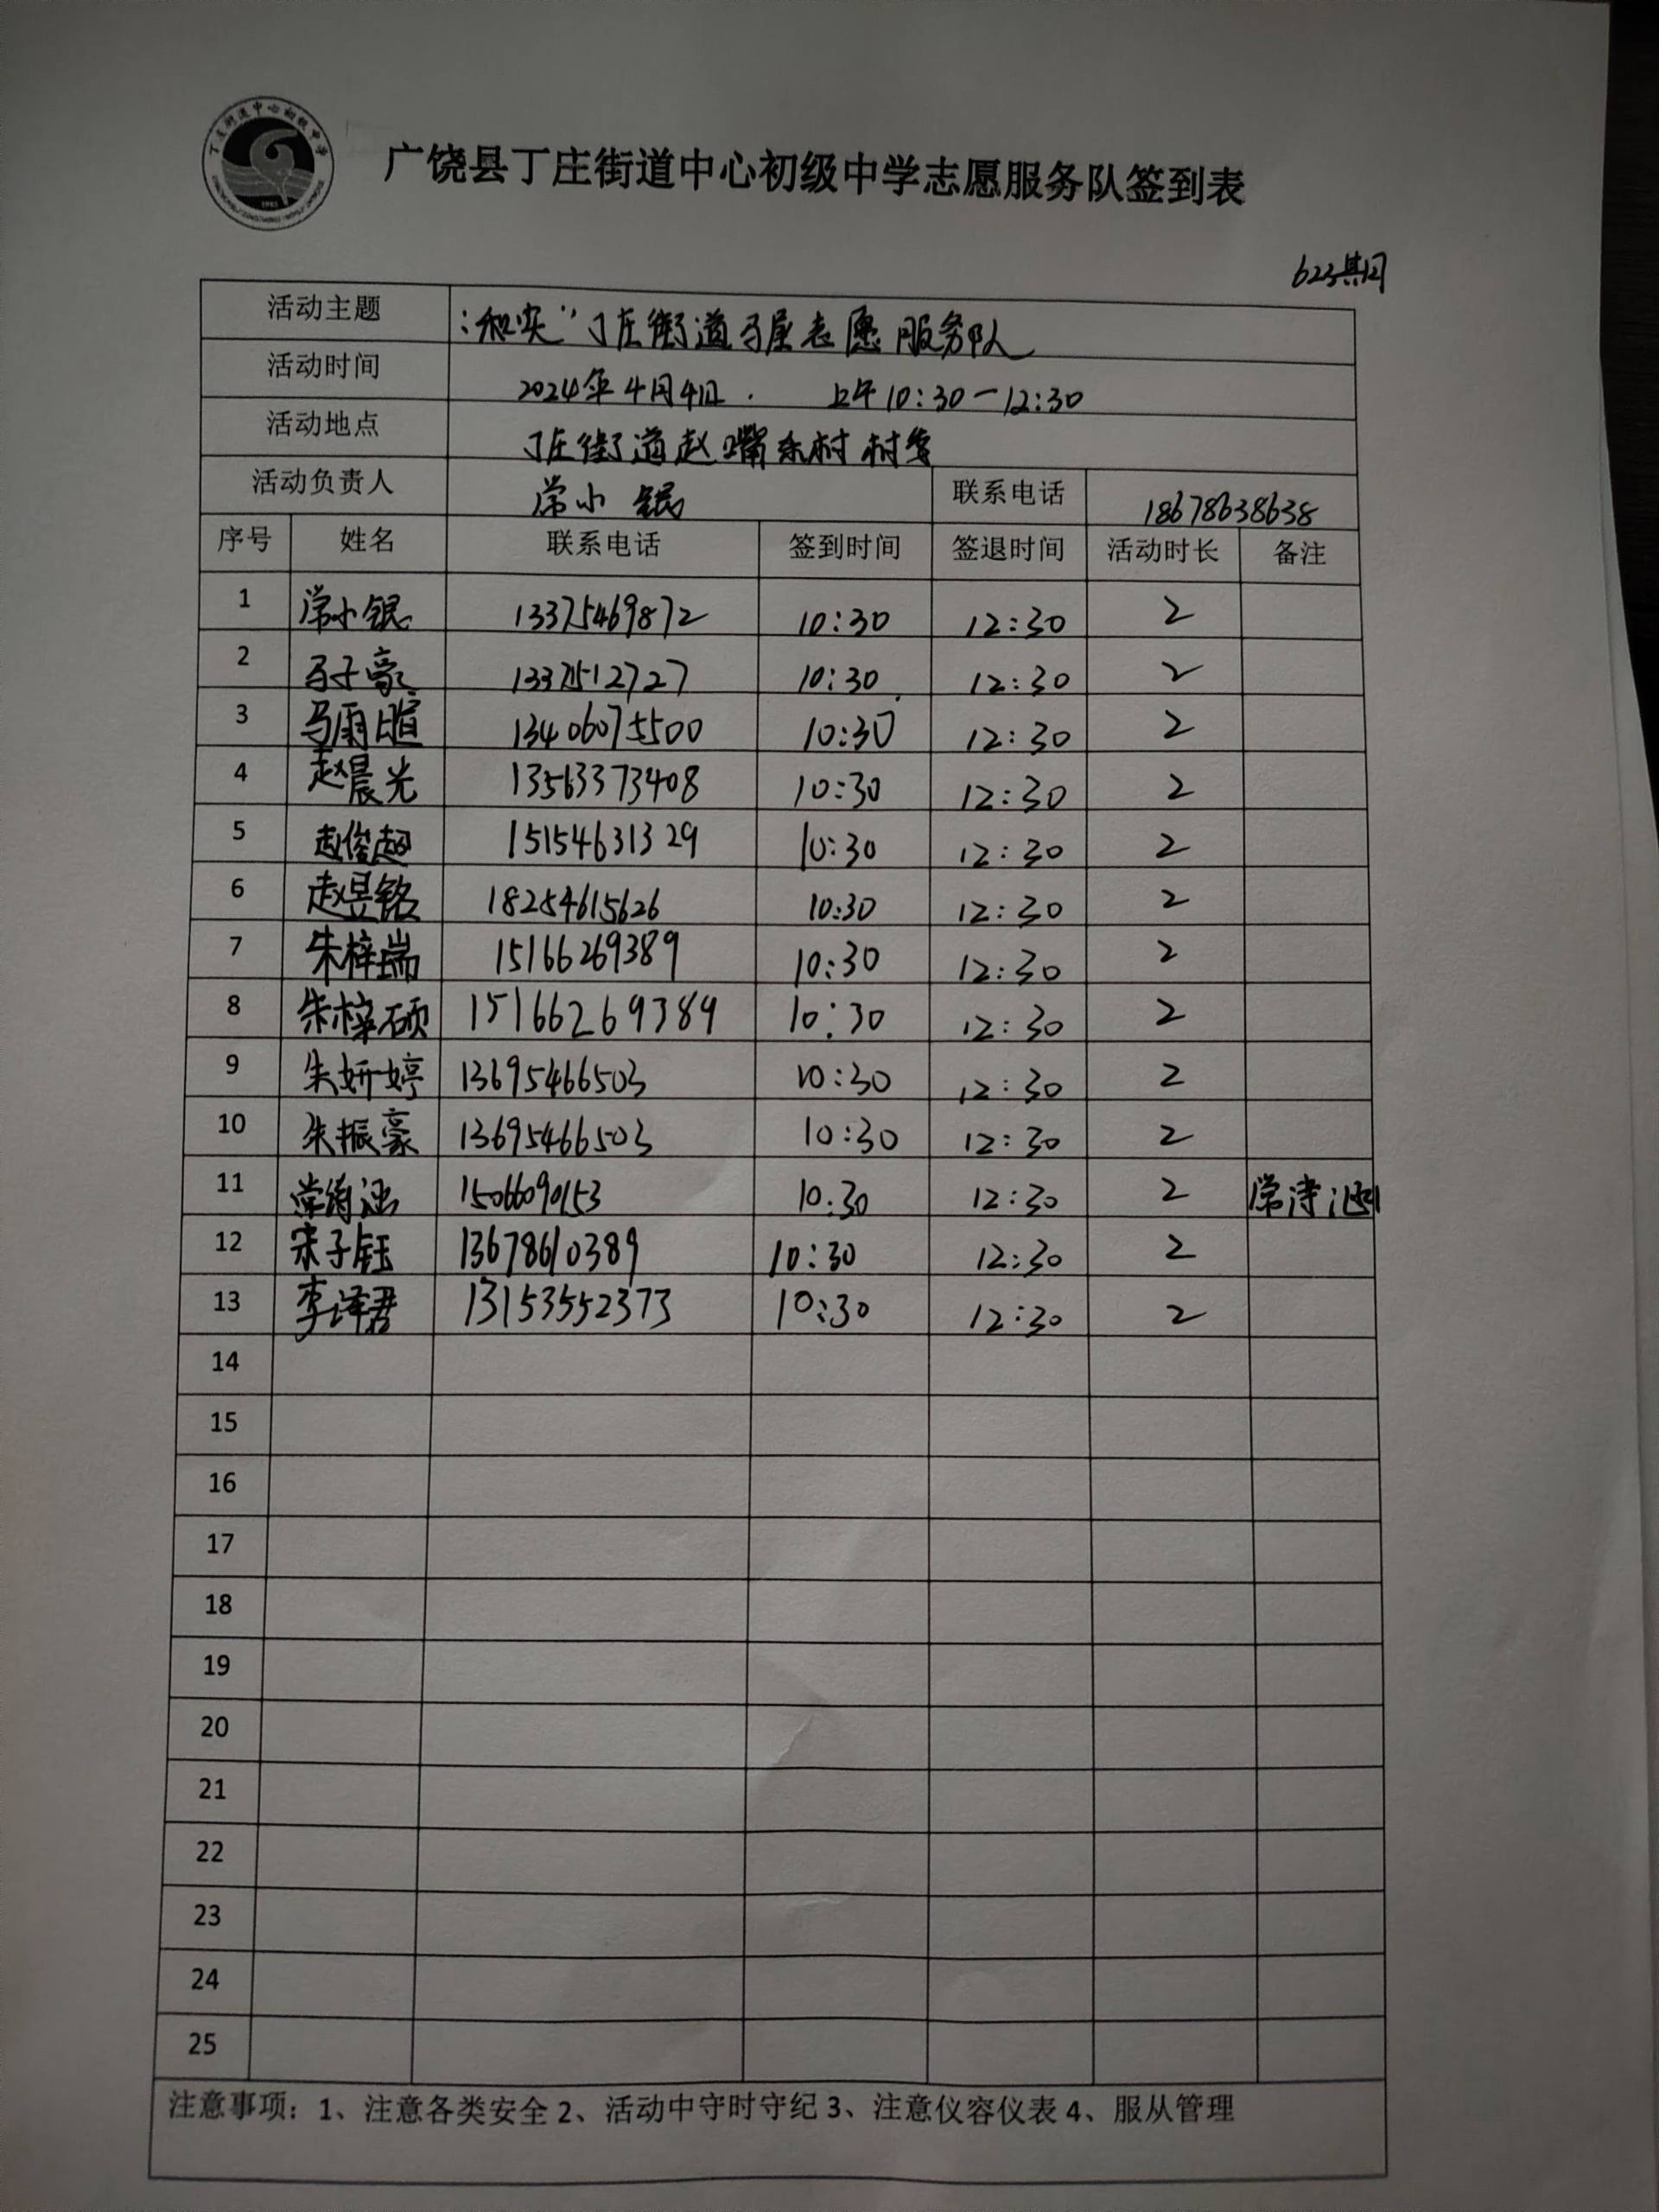 广饶县丁庄街道中心初级中学志愿服务队签到表
623期
活动主题 "和实"丁庄街道马屋志愿服务队
活动时间 2024年4月4日. 上午10:30-12:30
活动地点 丁庄街道赵嘴东村村委
活动负责人 常小银 联系电话 18678638638
序号 姓名 联系电话 签到时间 签退时间 活动时长 备注
1 常小银 13375469872 10:30 12:30 2
2 马子豪 10:30 12:30 2
3 马雨暄 13406075500 10:30 12:30 2
4 赵晨光 13563373408 10:30 12:30 2
5 赵俊超 15154631329 10:30 12:30 2
6 赵昱铭 18254615626 10:30 12:30 2
7 朱梓瑞 15166269389 10:30 12:30 2
8 朱梓硕 15166269389 10:30 12:30 2
9 朱妍婷 13695466503 10:30 12:30 2
10 朱振豪 13695466503 10:30 12:30 2
11 常诗涵 15066090153 10:30 12:30 2 常诗涵
12 宋子钰 13678610389 10:30 12:30 2
13 李泽君 13153552373 10:30 12:30 2
14
15
16
17
18
19
20
21
22
23
24
25
注意事项：1、注意各类安全 2、活动中守时守纪 3、注意仪容仪表 4、服从管理